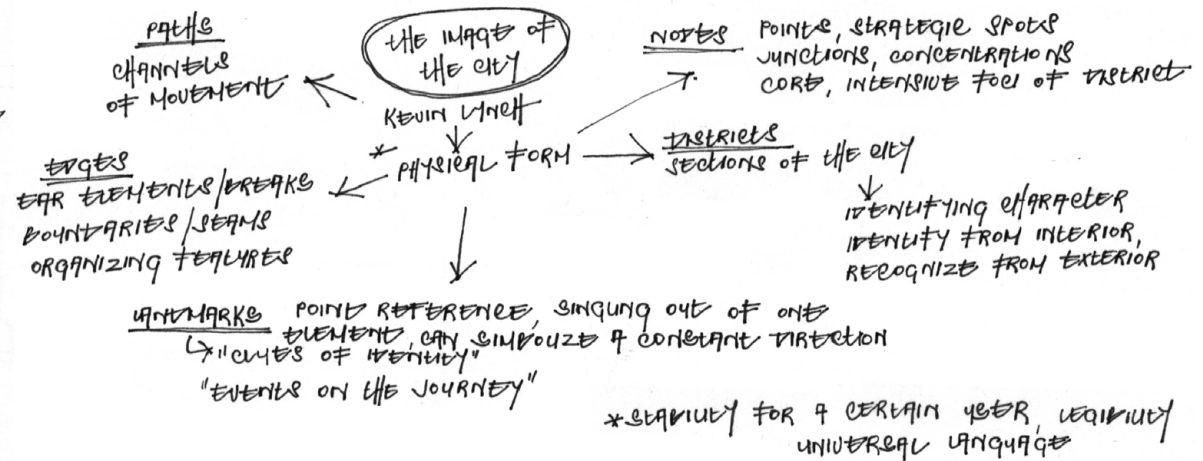 THE IMAGE OF
THE CITY
KEVIN LYNCH
* PHYSICAL FORM
PATHS
CHANNELS
OF MOVEMENT
NODES POINTS, STRATEGIC SPOTS
JUNCTIONS, CONCENTRATIONS
CORE, INTENSIVE FOCI OF DISTRICT
DISTRICTS
SECTIONS OF THE CITY
IDENTIFYING CHARACTER
IDENTIFY FROM INTERIOR,
RECOGNIZE FROM EXTERIOR
EDGES
EAR ELEMENTS/BREAKS
BOUNDARIES/SEAMS
ORGANIZING FEATURES
LANDMARKS POINT REFERENCE, SINGLING OUT OF ONE
ELEMENT, CAN SIMBOLIZE A CONSTANT DIRECTION
"CLUES OF IDENTITY"
"EVENTS ON THE JOURNEY"
*STABILITY FOR A CERTAIN USER, LEGIBILITY
UNIVERSAL LANGUAGE